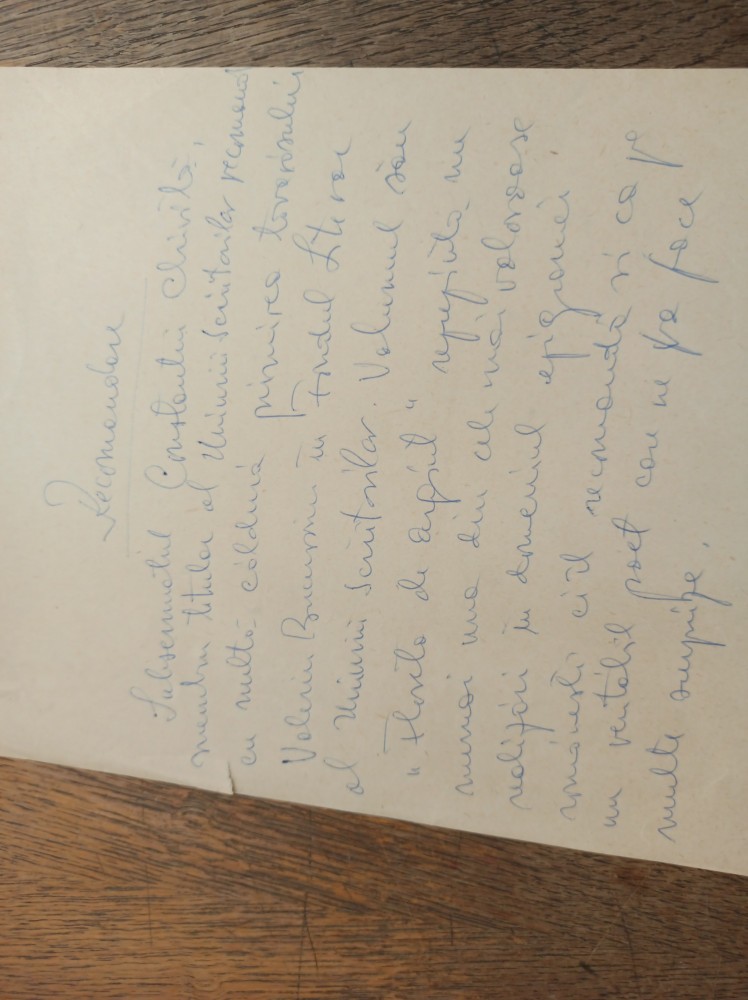 Recomandare
Subsemnatul Constantin Chiriță,
membru titular al Uniunii Scriitorilor recomand
cu multă căldură primirea tovarășului
Valeriu Bucuroiu în Fondul Literar
al Uniunii Scriitorilor. Volumul său
"Floreta de argint" reprezintă nu
numai una din cele mai valoroase
realizări în domeniul epigramei
românești ci îl recomandă și ca pe
un veritabil poet care ne va face
multe surprize.